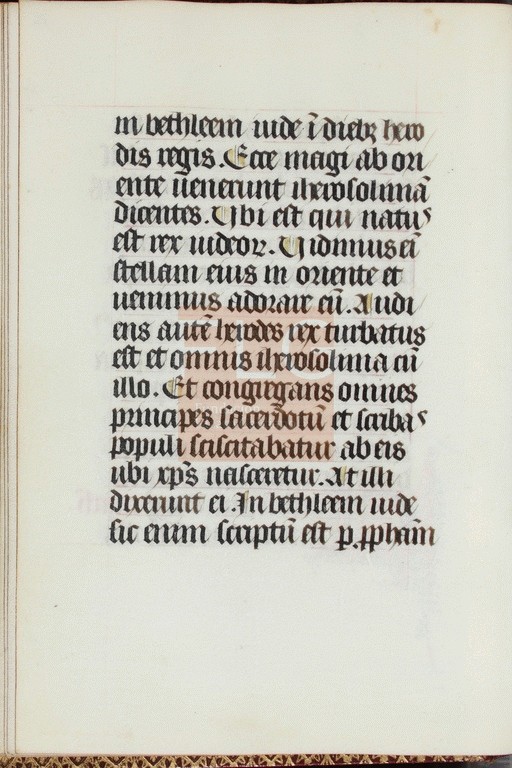 in bethleem iude ī diebꝫ hero
dis regis. Ecce magi ab ori
ente uenerunt iherosolimā
dicentes. Ubi est qui natus
est rex iudeoꝝ. Uidimus eī
stellam eius in oriente et
uenimus adorare eū. Audi
ens autē herodes rex turbatus
est et omnis iherosolima cū
illo. Et congregans omnes
principes sacerdotū et scribas
populi sciscitabatur ab eis
ubi xp̄s nasceretur. At illi
dixerunt ei. In bethleem iude
sic enim scriptū est ꝑ. ꝓpham̄